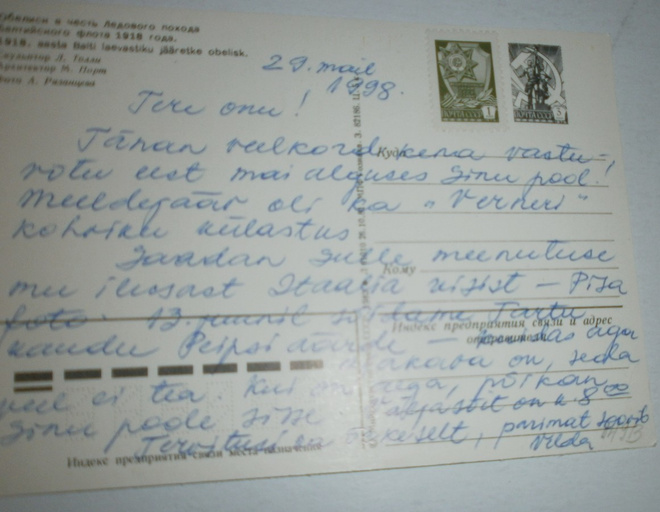 Обелиск в честь Ледового похода
Балтийского флота 1918 года.
1918. aasta Balti laevastiku jääretke obelisk.
Скульптор Л. Толли
Архитектор М. Порт
Фото А. Рязанцева
29. mail
1998.
ПОЧТА СССР 1
ПОЧТА СССР
Tere onu!
Tänan veelkord kena vastu-
võtu eest mai alguses Sinu pool!
Meeldejääv oli ka "Verneri"
kohviku külastus
Saadan Sulle meenutuse
mu ilusast Itaalia reisist – Pisa
foto. 13. juunil sõidame Tartu
kaudu Peipsi äärde – kuidas aga
ajakava on, seda
veel ei tea. Kui on aega, põikan
Sinu poole sisse
on k. 8⁰⁰
Tervitusi ka õekeselt, parimat soovib
Velda
Куда
Кому
Индекс предприятия связи и адрес
отправителя
Индекс предприятия связи места назначения